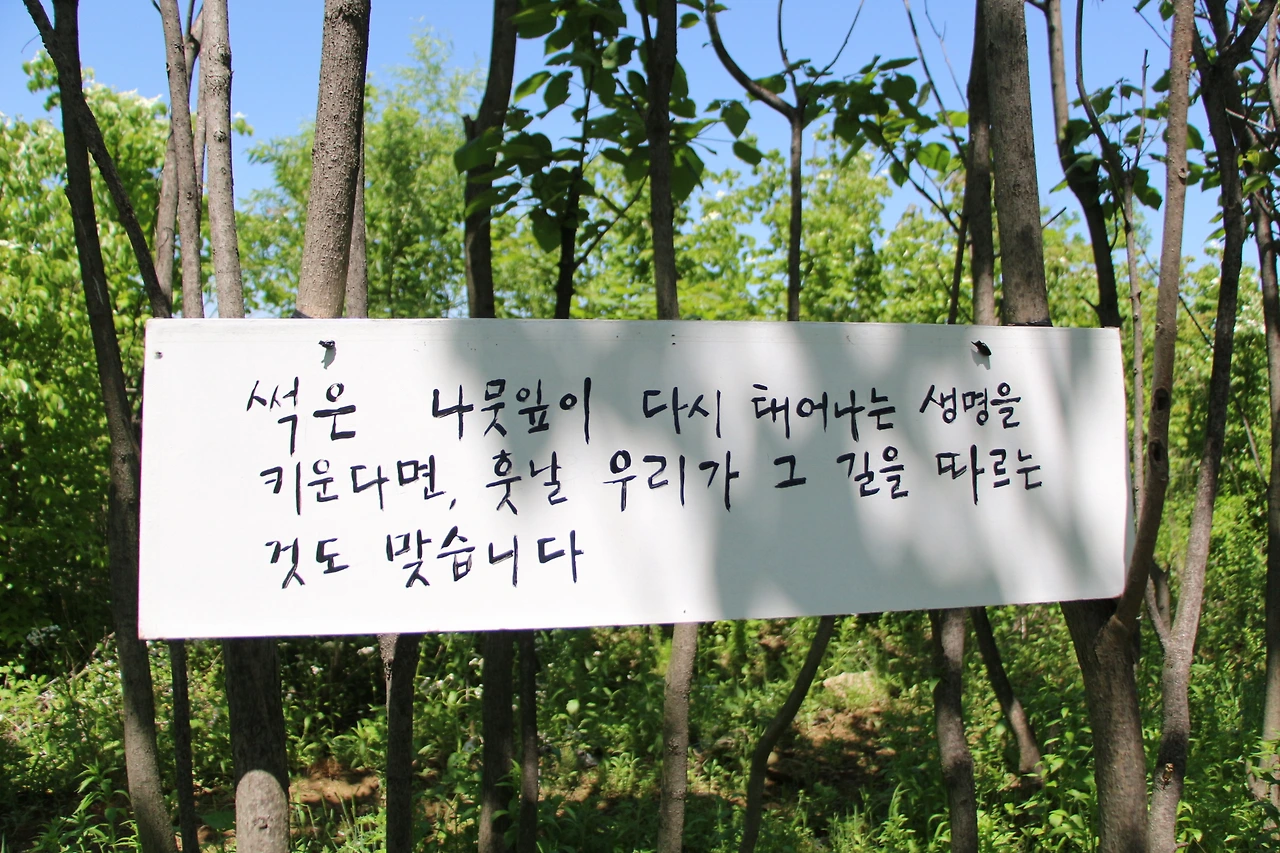 썩은 나뭇잎이 다시 태어나는 생명을
키운다면, 훗날 우리가 그 길을 따르는
것도 맞습니다